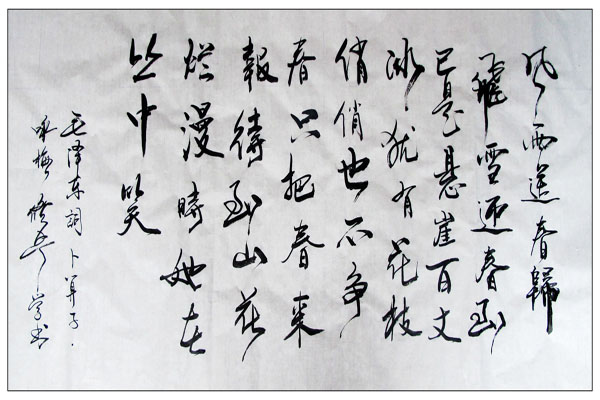 风雨送春歸
飛雪迎春到
已是悬崖百丈
冰犹有花枝
俏俏也不争
春只把春来
報待到山花
烂漫時她在
丛中笑
毛泽东詞卜算子·
咏梅 学书